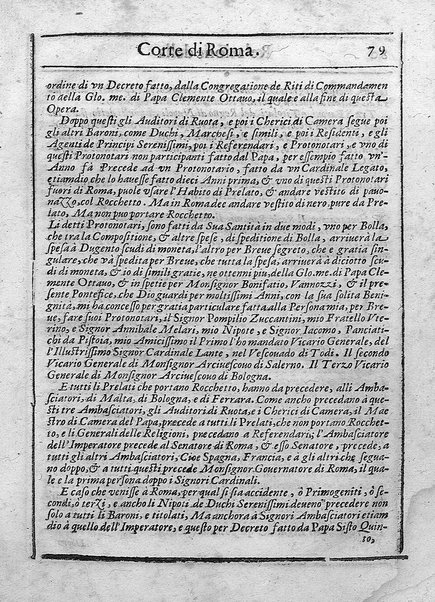 Corte di Roma. 79
ordine di vn Decreto fatto, dalla Congregatione de Riti di Commandamen
to della Glo. me. di Papa Clemente Ottauo, il quale è alla fine di questa
Opera.
Doppo questi gli Auditori di Ruota, e poi i Cherici di Camera segue poi
gli altri Baroni, come Duchi, Marchesi, e simili, e poi i Residente, e gli
Agenti de Principi Serenissimi, poi i Referendari, e Protonotari, e vno di
questi Protonotari non participanti fatto dal Papa, per essempio fatto vn'
Anno fà Precede ad vn Protonotario, fatto da vn Cardinale Legato,
etiamdio che lo hauesse fatto dieci Anni prima, & vno di questi Protonotari
fuori di Roma, puole vsare l'Habito di Prelato, & andare vestito di pauo-
nazzo, col Rocchetto. Ma in Roma dee andare vestito di nero, pure da Pre
lato, Ma non puo portare Rocchetto.
Li detti Protonotari, sono fatti da Sua Santità in due modi, vno per Bolla,
che tra la Compositione, & altre spese, di speditione di Bolla, arriuerà la
spesa à Dugento scudi di moneta, l'altro per Breue segreto, che è gratia sin-
gulare, che và spedita per Breue, che tutta la spesa, arriuerà à diciotto scu-
di di moneta, & io di simili gratie, ne ottenni piu, della Glo. me. di Papa Cle
mente Ottauo, & in spetie per Monsignor Bonifatio, Vannozzi, & il pre
sente Pontefice, che Dio guardi per moltissimi Anni, con la sua solita Beni-
gnità, mi ha concesso per gratia particulare fatta alla Persona mia, per Bre-
ue, fare suoi Protonotari, il Signor Pompilio Zuccantini, mio Fratello Vte-
rino, e Signor Annibale Melari, mio Nipote, e Signor Iacomo, Panciati-
chi da Pistoia, mio Amicissimo il Primo l'ho mandato Vicario Generale, del
l'Illustrissimo Signor Cardinale Lante, nel Vescouado di Todi. Il secondo
Vicario Generale di Monsignor Arciuescouo di Salerno. Il Terzo Vicario
Generale di Monsignor Arciuescouo di Bologna.
E tutti li Prelati che portano Rocchetto, hanno da precedere, alli Amba-
sciatori, di Malta, di Bologna, e di Ferrara. Come ancho precedano a que-
sti tre Ambasciatori, gli Auditori di Ruota, e i Cherici di Camera, il Mae
stro di Camera del Papa, precede a tutti li Prelati, che non portano Rocchet-
to, e li Generali delle Religioni, precedano a Referendari, l'Ambasciatore
dell'Imperatore precede al Senatore di Roma, & esso Senatore, precede, a
tutti gli altri Ambasciatori, Cioè Spagna, Francia, e a gli altri che segua-
no doppo, & a tutti questi precede Monsignor Gouernatore di Roma, il qua
le è la prima persona doppo i Signori Cardinali.
E caso che venisse a Roma, per qual si sia accidente, ò Primogeniti, ò se-
condi, ò terzi, e ancho li Nipoti de Duchi Serenissimi deueno precedere non
solo a tutti li Baroni, e titolati, Ma anchora à Signori Ambasciatori etiam
dio à quello dell'Imperatore, e questo per Decreto fatto da Papa Sisto Quin-
to,